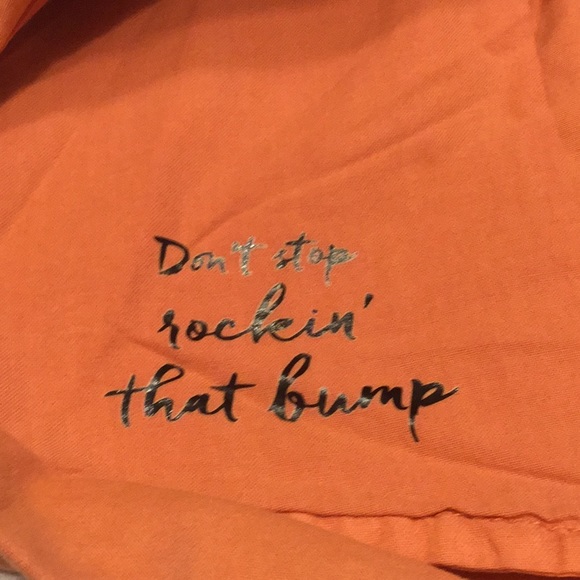 Don't stop
rockin'
that bump